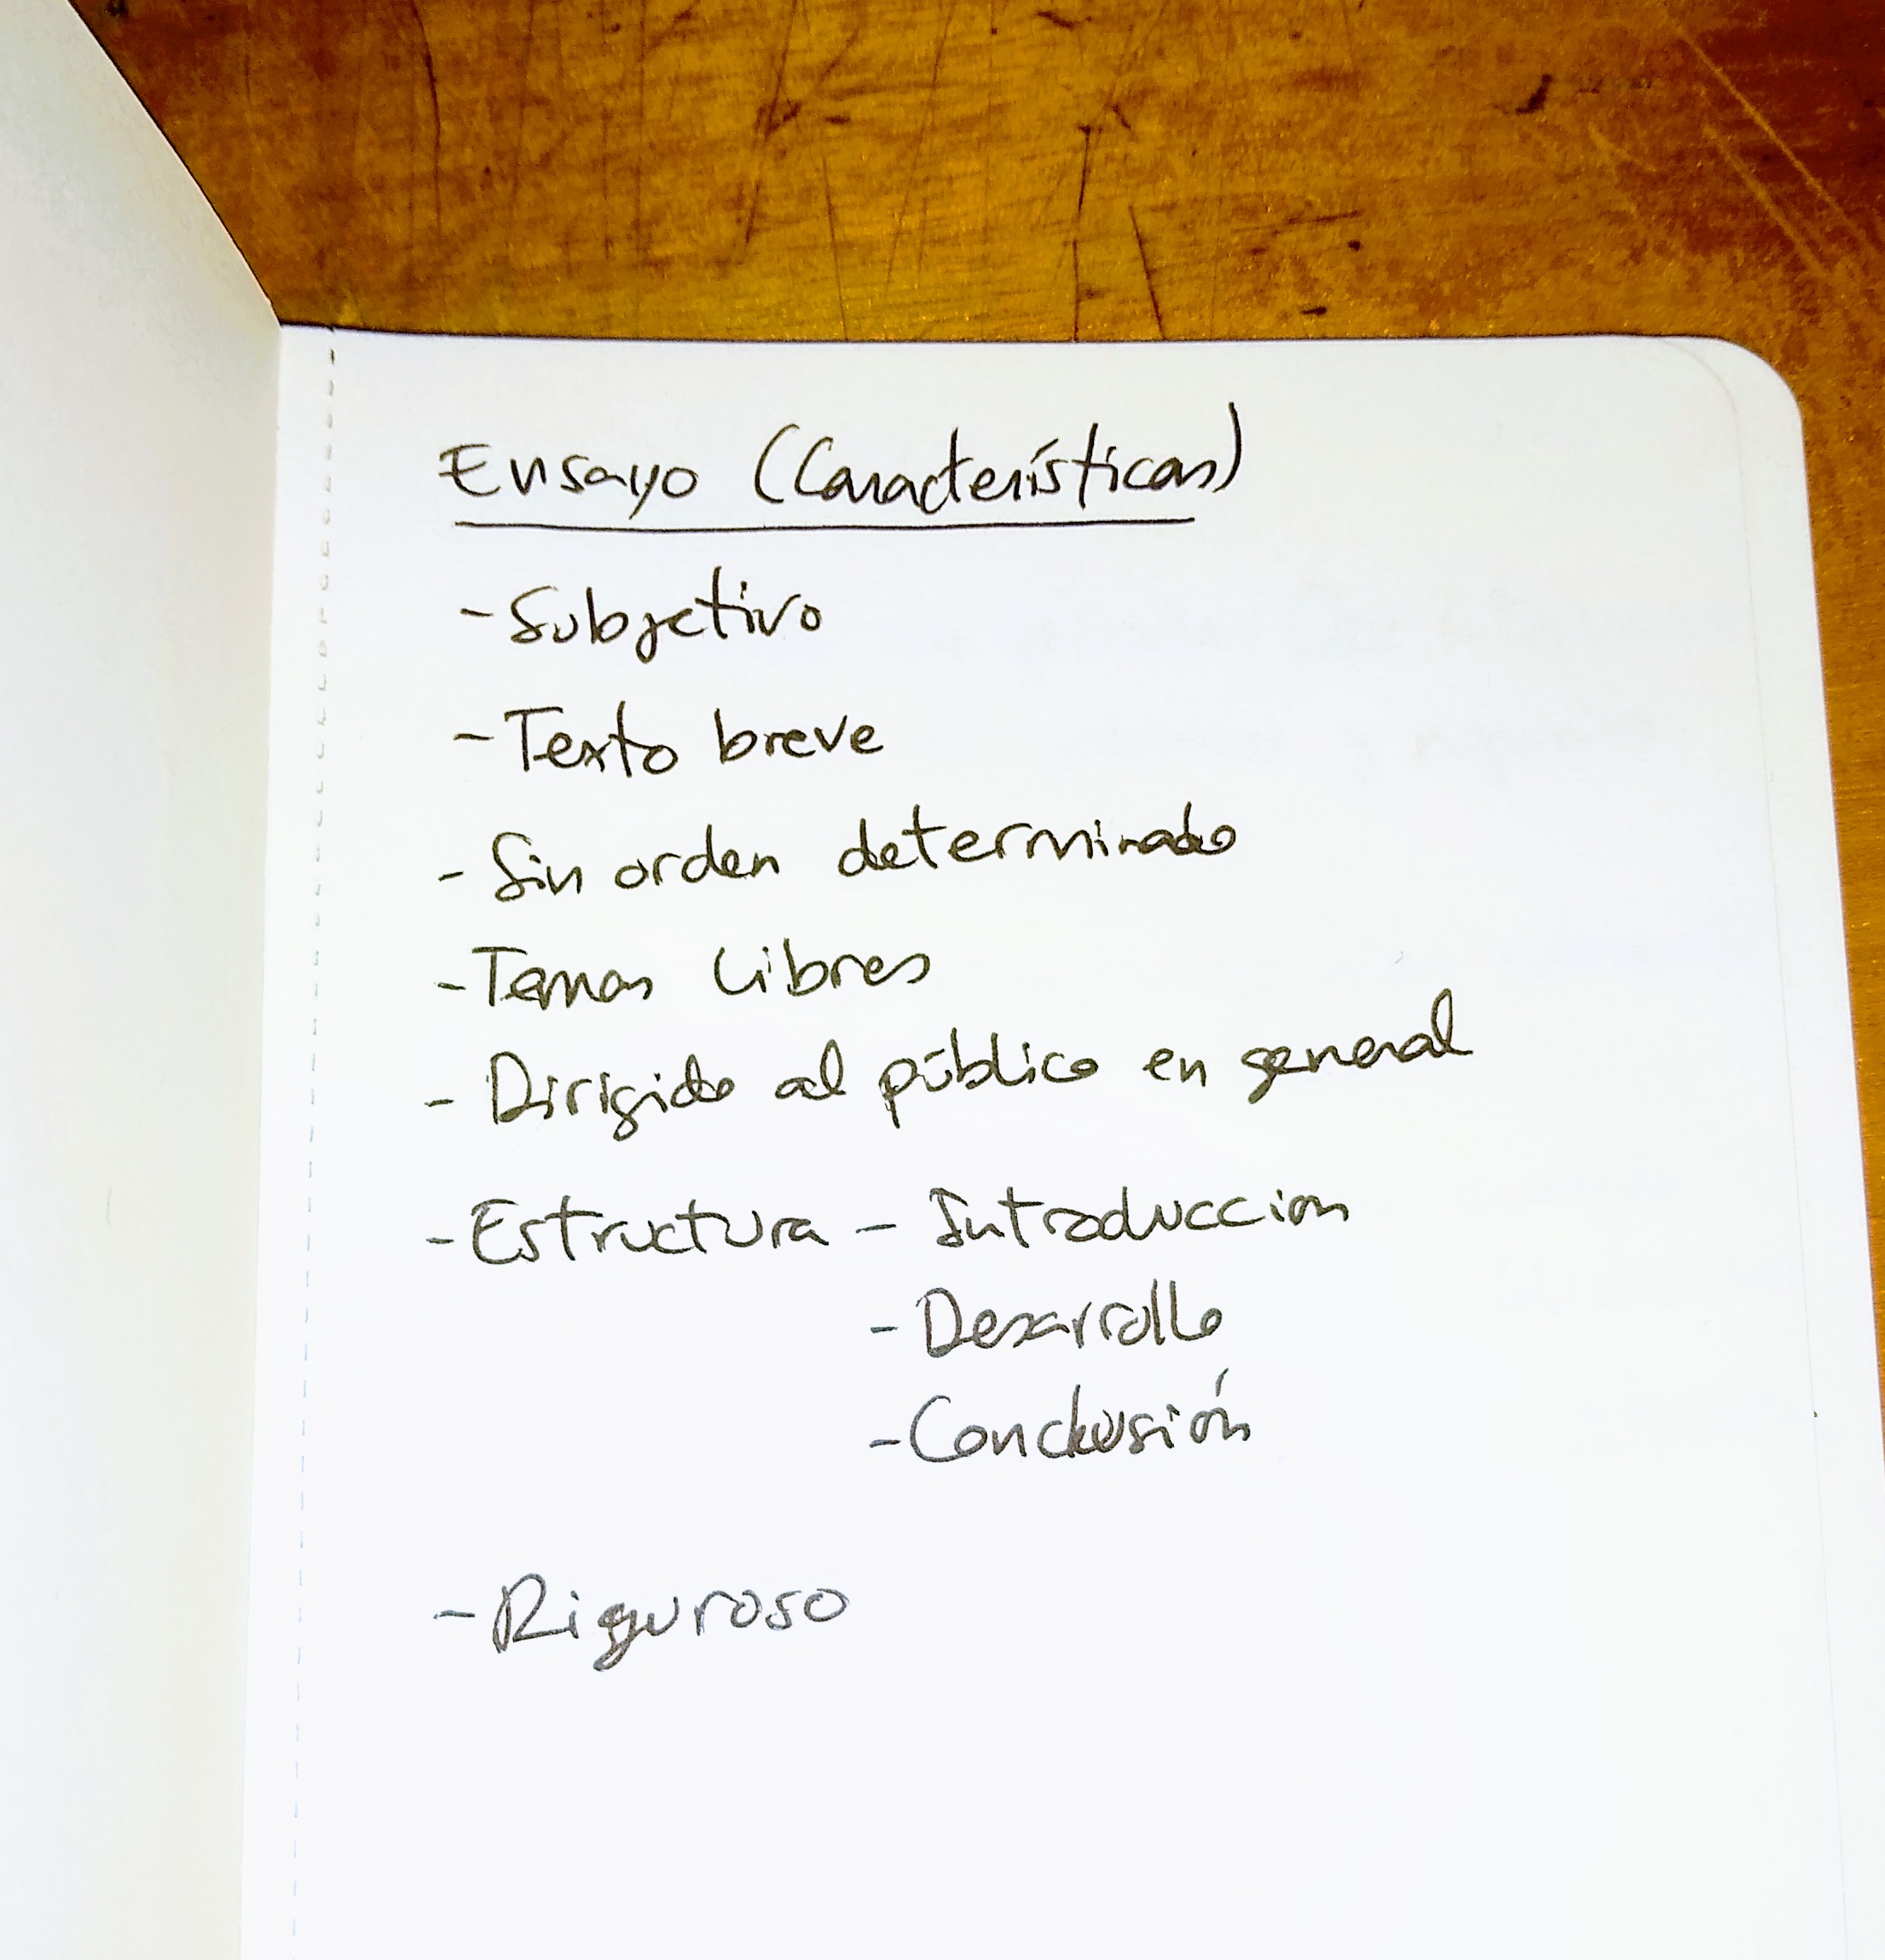 Ensayo (Características)
- Subjetivo
- Texto breve
- Sin orden determinado
- Temas Libres
- Dirigido al público en general
- Estructura - Introduccion
- Desarrollo
- Conclusión
- Riguroso